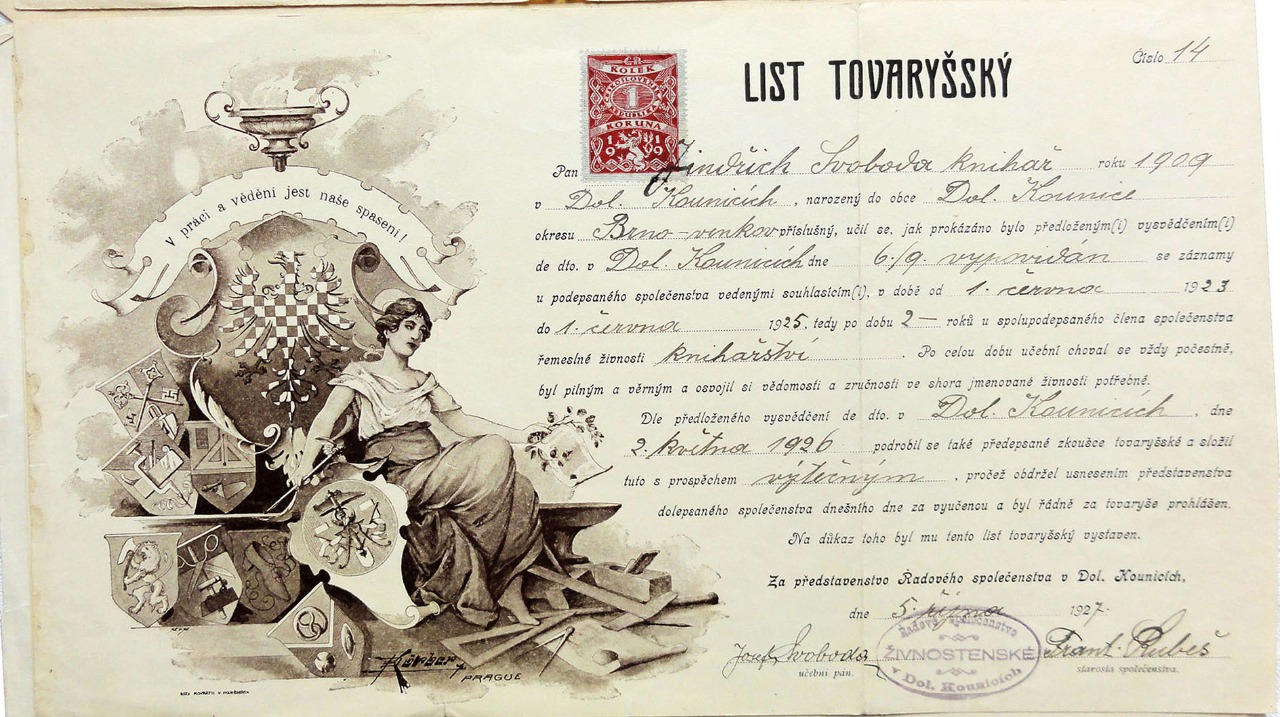 LIST TOVARYŠSKÝ
Číslo 14
KOLEK
1
KORUNA
1919
V práci a vědění jest naše spasení!
Pan Jindřich Svoboda knihař roku 1909
v Dol. Kounicích, narozený do obce Dol. Kounice
okresu Brno-venkov příslušný, učil se, jak prokázáno bylo předloženým(i) vysvědčením(i)
de dto. v Dol. Kounicích dne 6./9. vypovídán se záznamy
u podepsaného společenstva vedenými souhlasícím(i), v době od 1. června 1923
do 1. června 1925, tedy po dobu 2 — roků u spolupodepsaného člena společenstva
řemeslné živnosti knihařství. Po celou dobu učební choval se vždy počestně,
byl pilným a věrným a osvojil si vědomosti a zručnosti ve shora jmenované živnosti potřebné.
Dle předloženého vysvědčení de dto. v Dol. Kounicích, dne
2. května 1926 podrobil se také předepsané zkoušce tovaryšské a složil
tuto s prospěchem výtečným, pročež obdržel usnesením představenstva
dolepsaného společenstva dnešního dne za vyučenou a byl řádně za tovaryše prohlášen.
Na důkaz toho byl mu tento list tovaryšský vystaven.
Za představenstvo Řadového společenstva v Dol. Kounicích,
dne 5. října 1927.
Řadové společenstvo
ŽIVNOSTENSKÉ
v Dol. Kounicích
Josef Svoboda
učební pán.
Frant. Rubeš
starosta společenstva.
PRAGUE